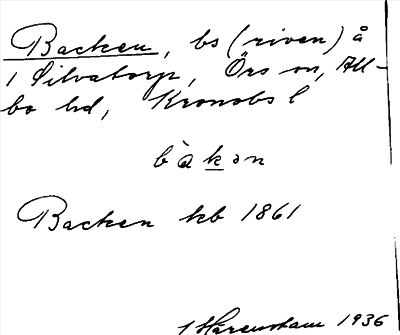 Backen, bs (riven) å
1 Silvatorp, Örs sn, All-
bo hd, Kronobs l
bàkən
Backen kb 1861
Harenstam 1936